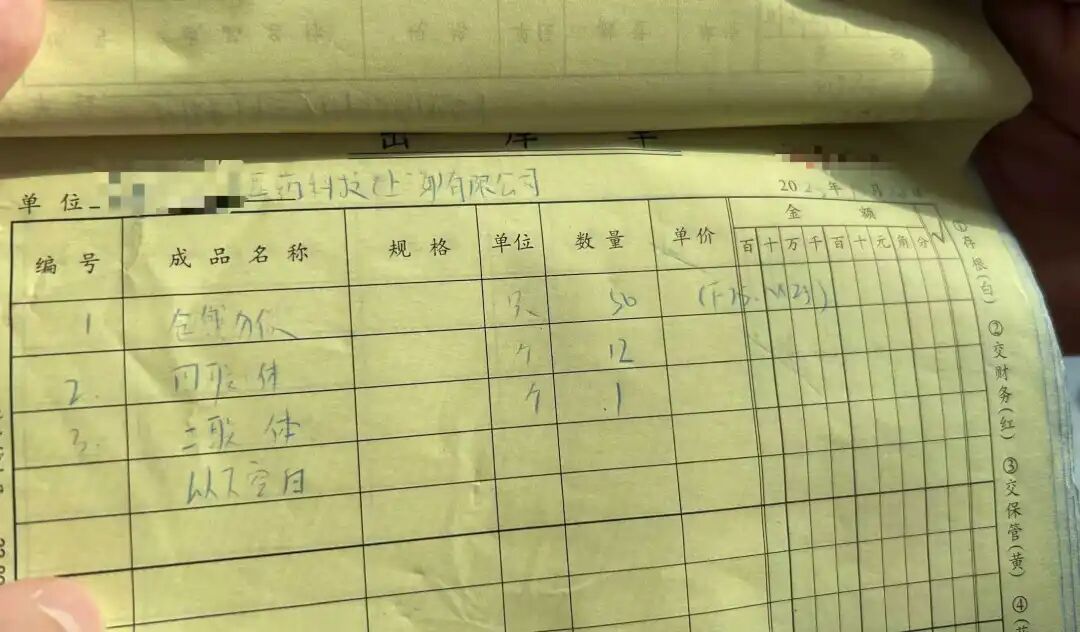 出库单
单位 医药科技(上海)有限公司
202 年 月
编号 成品名称 规格 单位 数量 单价 金额
百十万千百十元角分
1 只 50
2. 四联体 个 12
3. 二联体 个 1
以下空白
①存根(白)
②交财务(红)
③交保管(黄)
④